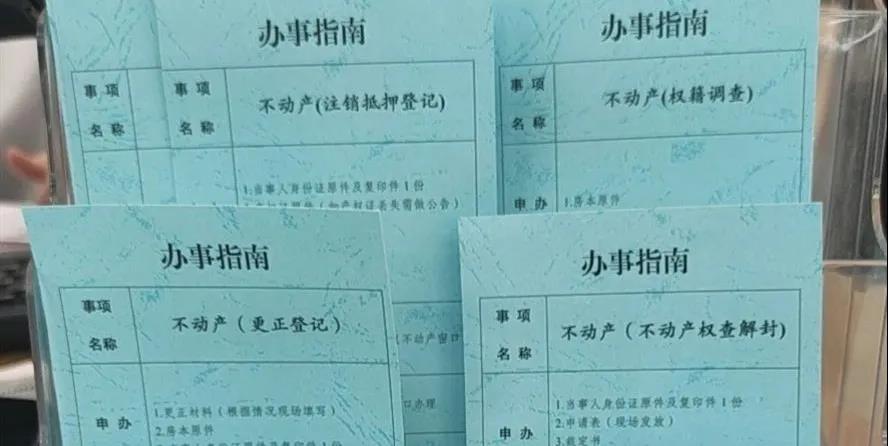 办事指南
事项
名称
事项
名称
不动产(注销抵押登记)
1.当事人身份证原件及复印件1份
办事指南
事项
名称
不动产(权籍调查)
申办
1.房本原件
办事指南
事项
名称
不动产（更正登记）
申办
1.更正材料（根据情况现场填写）
2.房本原件
不动产窗口
口办理
办事指南
事项
名称
不动产（不动产权查解封)
申办
1.当事人身份证原件及复印件1份
2.申请表（现场发放）
3.裁定书